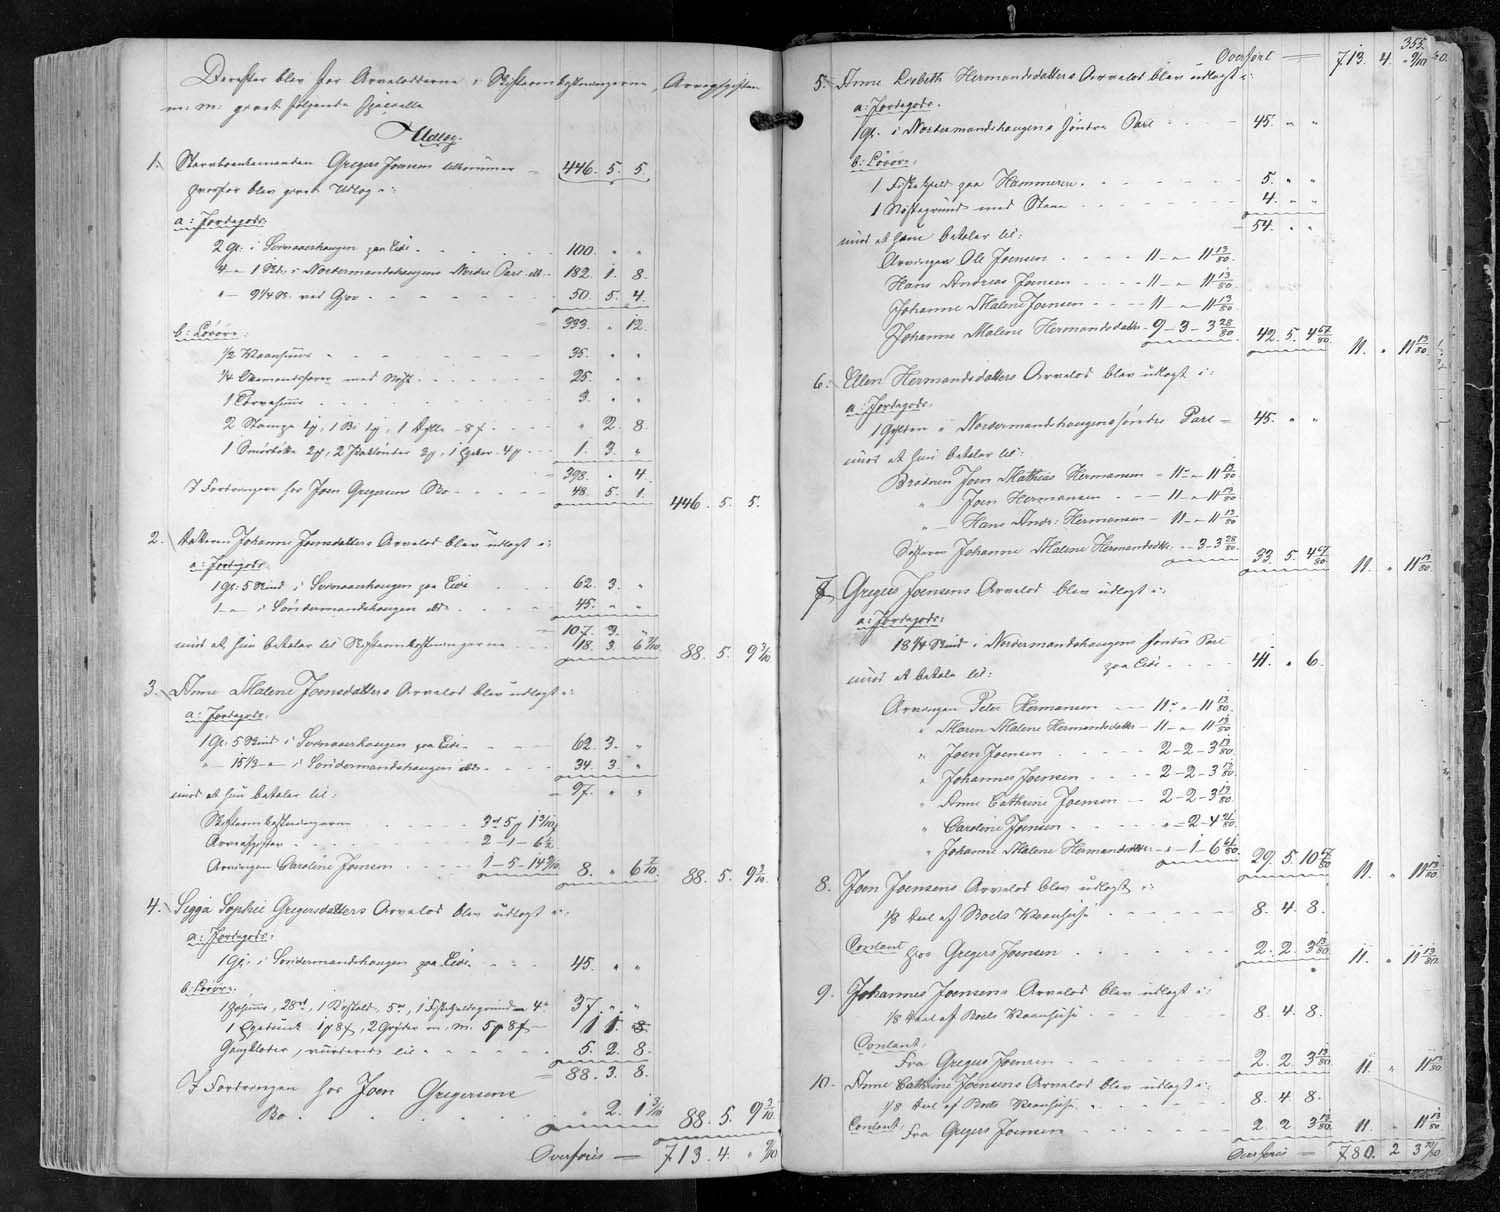 Derefter blev for Arvelodderne, Skifteomkostningerne, Arveafgiften
m: m: gjort følgende specielle
Udlæg.
1. Stervboenkemanden Gregers Joensen tilkommer — 446. 5. 5.
hvorfor blev gjort Udlæg i:
a: Jordegods:
2 Gl: i Sornaaerhaugen paa Eide 100. " "
4 — " 1 Sk: i Nordermandshaugens Nordre Parl ds. 182. 1. 8.
" — 9 1/4 Sk. ved Gjov 50. 5. 4.
333. " 12.
b: Løsøre:
1/2 Kraanhuus 35. " "
1/4 Ottemandsfarer med Nøst 25. " "
1 Tørvehuus 3. " "
2 Stampe 1 ₰, 1 Bi 1 ₰, 1 — 8 ſ " 2. 8.
1 2 ₰, 2 3 ₰, 1 4 ₰ 1. 3. "
398. " 4.
I Fordringen hos Joen Gregersens Bo 48. 5. 1. 446. 5. 5.
2. Datteren Johanne Joensdatters Arvelod blev udlagt i:
a: Jordegods:
1 Gl: 5 Skind i Sornaaerhaugen paa Eide 62. 3. "
1 — " — i Søndermandshaugen ds. 45. " "
107. 3. "
mod at hun betaler til Skifteomkostningerne 18. 3. 6 7/10 88. 5. 9 3/10
3. Anne Malene Joensdatters Arvelod blev udlagt i:
a: Jordegods:
1 Gl: 5 Skind i Sornaaerhaugen paa Eide 62. 3. "
" — 15 1/3 — " — i Søndermandshaugen ds. 34. 3. "
97. " "
mod at hun betaler til:
Skifteomkostningerne 3 rd 5 ₰ 1
Arveafgiften 2 — 1 — 6 1/2
Arvingen Caroline Joensen 1 — 5 — 14 8. " 6 7/10 88. 5. 9 3/10
4. Sigga Sophie Gregersdatters Arvelod blev udlagt i:
a: Jordegods:
1 Gl: i Søndermandshaugen paa Eide 45. " "
b: Løsøre:
1 Hjehuus, 28 rd, 1 Nøstold 5 rd, 1 Fiskehjeldsgrund 4 rd 37. " "
1 1 ₰ 8 ſ, 2 Gryder m. m. 5 ₰ 8 ſ 1 1. 8.
Gangklæder, vurderet til 5. 2. 8.
88. 3. 8.
I Fordringen hos Joen Gregersens
Bo " 2. 1 3/10 88. 5. 9 3/10
Overføres — 713. 4. "
355.
Overført — 713. 4. " 9/10
5. Anne Lisbeth Hermandsdatters Arvelod blev udlagt i:
a: Jordegods:
1 Gl: i Nordermandshaugens søndre Parl 45. " "
b: Løsøre:
1 Fiskehjeld paa Hammeren 5. " "
1 Nøstegrund med Stene 4. " "
54. " "
mod at hun betaler til:
Arvingen Ole Joensen 11 — " — 11 13/80
Hans Andreas Joensen 11 — " — 11 13/80
Johanne Malene Joensen 11 — " — 11 13/80
Johanne Malene Hermandsdatter — 9 — 3 — 3 28/80 42. 5. 4 67/80 11. " 11 13/80
6. Ellen Hermandsdatters Arvelod blev udlagt i:
a: Jordegods:
1 Gylden i Nordermandshaugens søndre Parl 45. " "
mod at hun betaler til:
Broderen Joen Mathias Hermansen — 11 — " — 11 13/80
" Joen Hermansen — 11 — " — 11 13/80
" — Hans Andr: Hermansen — 11 — " — 11 13/80
Søsteren Johanne Malene Hermandsdtr. " — 3 — 3 28/80 33. 5. 4 67/80 11. " 11 13/80
7. Gregers Joensens Arvelod blev udlagt i:
a: Jordegods:
18 1/4 Skind i Nordermandshaugens søndre Parl
paa Eide 41. " 6.
mod at betale til:
Arvingen Peter Hermansen — 11 — " — 11 13/80
" Maren Malene Hermandsdatter — 11 — " — 11 13/80
" Joen Joensen 2 — 2 — 3 13/80
" Johannes Joensen 2 — 2 — 3 13/80
" Anne Cathrine Joensen — 2 — 2 — 3 13/80
" Caroline Joensen " — 2 — 4 21/80
" Johanne Malene Hermandsdatter " — 1 — 6 61/80 29. 5. 10 67/80 11. " 11 13/80
8. Joen Joensens Arvelod blev udlagt i:
1/8 Deel af Boets Kraanhuse 8. 4. 8.
Contant fra Gregers Joensen 2. 2. 3 13/80 11. " 11 13/80
9. Johannes Joensens Arvelod blev udlagt i:
1/8 Deel af Boets Kraanhuse 8. 4. 8.
Contant:
Fra Gregers Joensen 2. 2. 3 13/80 11. " 11 13/80
10. Anne Cathrine Joensens Arvelod blev udlagt i:
1/8 Deel af Boets Kraanhuse 8. 4. 8.
Contant: Fra Gregers Joensen 2. 2. 3 13/80 11. " 11 13/80
Overføres — 780. 2 3